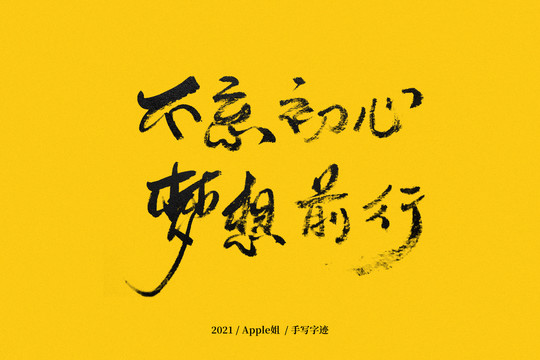 不忘初心
梦想前行
2021 / Apple姐 / 手写字迹